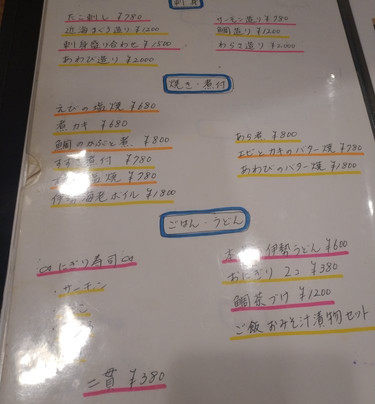 刺身
たこ刺し ¥780
近海まぐろ造り ¥1200
刺身盛り合わせ ¥1500
あわび造り ¥2000
サーモン造り ¥780
鯛造り ¥1200
わらさ造り ¥1,000
焼き・煮付
えびの塩焼 ¥680
煮カキ ¥680
鯛のかぶと煮 ¥800
煮付 ¥780
焼 ¥780
伊勢海老ボイル ¥1800
あら煮 ¥800
エビとカキのバター焼 ¥780
あわびのバター焼 ¥1800
ごはん・うどん
にぎり寿司
・サーモン
二貫 ¥380
伊勢うどん ¥600
おにぎり 2コ ¥380
鯛茶づけ ¥1200
ご飯おみそ汁漬物セット